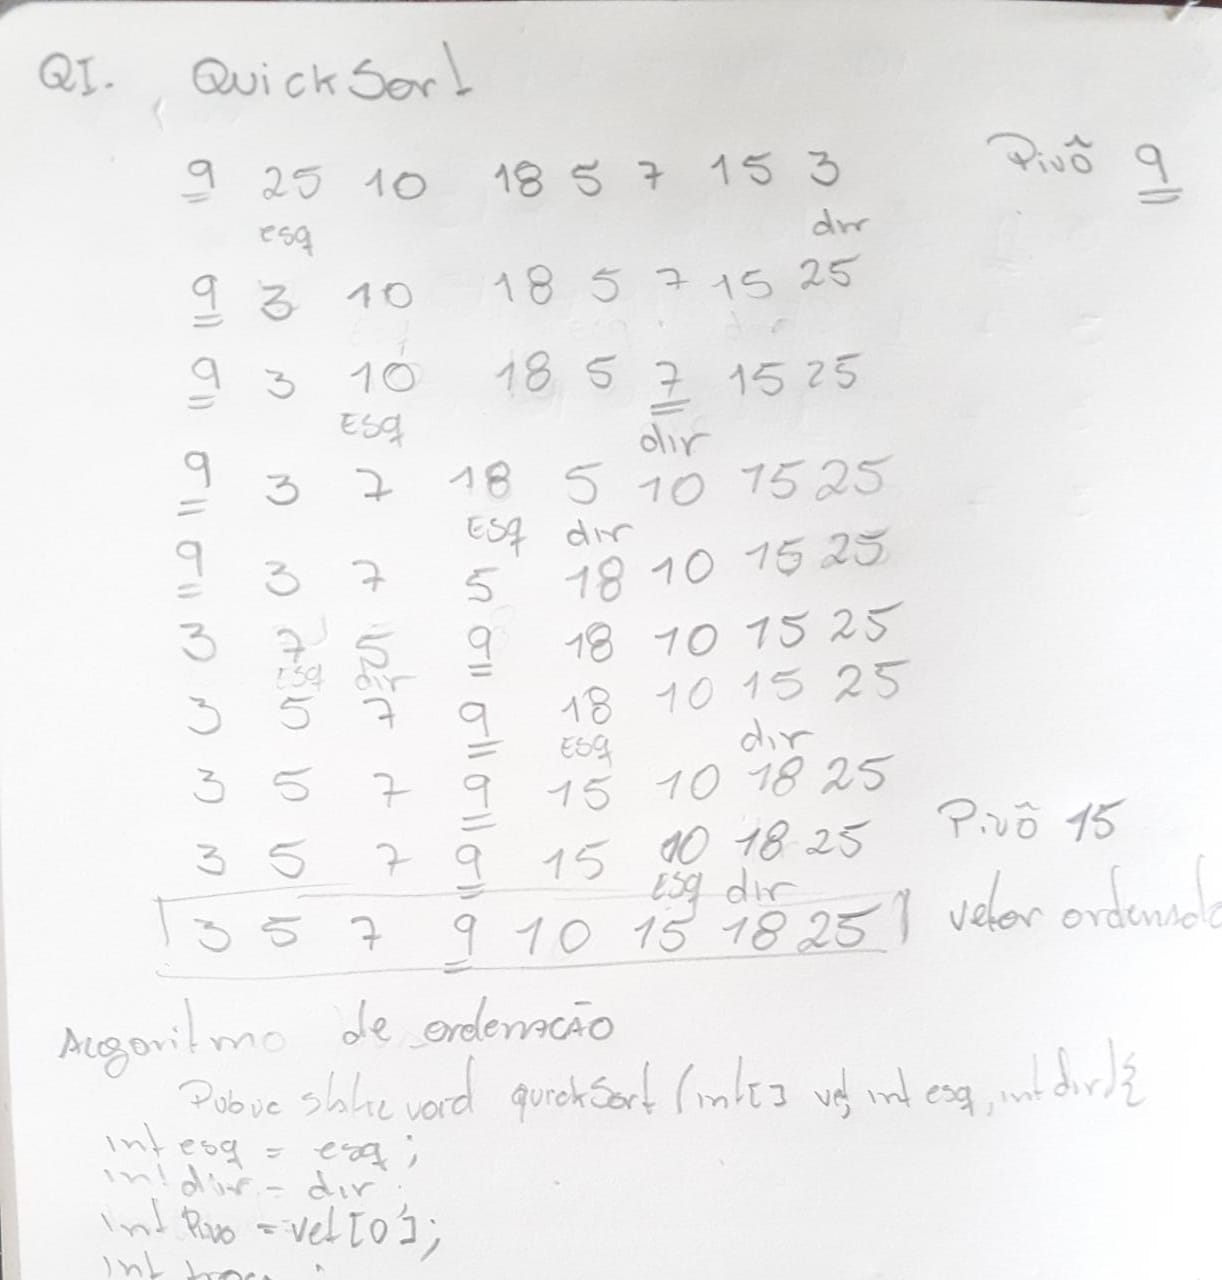 QI. QuickSort
9 25 10 18 5 7 15 3 Pivô 9
esq dir
9 3 10 18 5 7 15 25
9 3 10 18 5 7 15 25
Esq dir
9 3 7 18 5 10 15 25
Esq dir
9 3 7 5 18 10 15 25
3 7 5 9 18 10 15 25
Esq dir
3 5 7 9 18 10 15 25
Esq dir
3 5 7 9 15 10 18 25
3 5 7 9 15 10 18 25 Pivô 15
Esq dir
3 5 7 9 10 15 18 25 vetor ordenado
Algoritmo de ordenação
static void quickSort (int[] vet, int esq, int dir){
int esq = esq;
int dir = dir
int Pivo = vet[0];
int